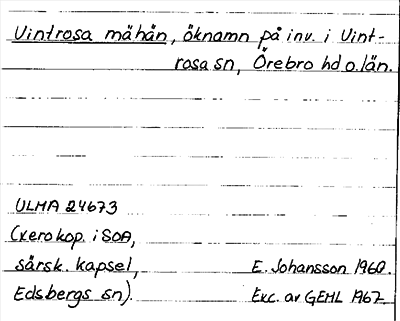 Vintrosa måhån, öknamn på inv. i Vint-
rosa sn, Örebro hd o. län.
ULMA 24673
(xerokop. i SOA,
särsk. kapsel, E. Johansson 1960.
Edsbergs sn). Exc. av GEHL 1967